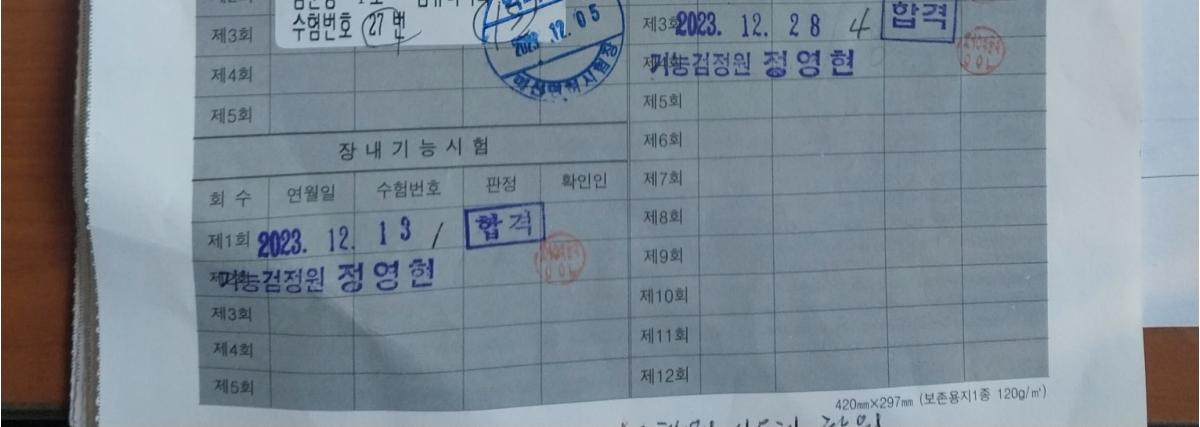 수험번호 27번
제3회
2023.12.05
마산면허시험장
제4회
제5회
장내기능시험
회 수 연월일 수험번호 판정 확인인
제1회 2023. 12. 13 / 합격
기능검정원 정영현
제3회
제4회
제5회
제3회 2023. 12. 28 4 합격
기능검정원 정영현
제5회
제6회
제7회
제8회
제9회
제10회
제11회
제12회
420mm×297mm (보존용지1종 120g/㎡)